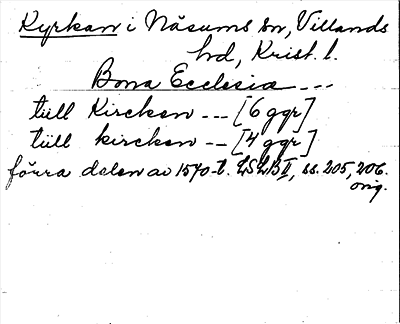 Kyrkan i Näsums sn, Villands
hd, Krist. l.
Bona Ecclesia ---
tüll Kircken --- [6 ggr]
tüll kircken -- [4 ggr]
förra delen av 1570-t. LSLB II, ss. 205, 206.
orig.